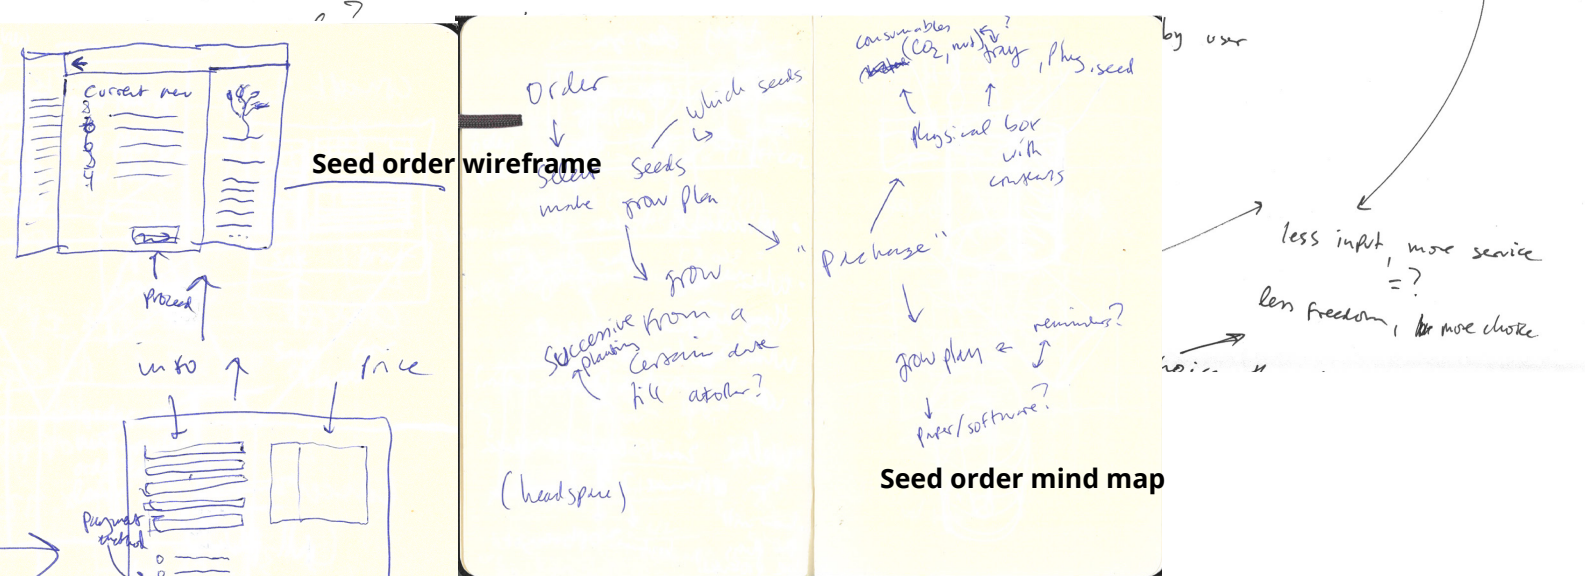 ?
Current new
Seed order wireframe
Proceed
info
Price
Payment
method
Order
which seeds
Select seeds
make grow plan
grow
from a
certain date
till another?
successive
planting
(headspace)
consumables
(CO2, nut)
?
tray, plug, seed
Physical box
with
contents
"Package"
grow plan
reminders?
paper/software?
Seed order mind map
by user
less input, more service
= ?
less freedom, more choice